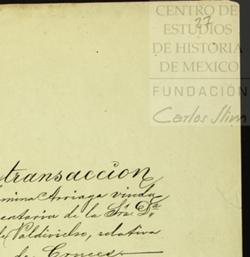 CENTRO DE
ESTUDIOS
DE HISTORIA
DE MEXICO
27
FUNDACIÓN
Carlos Slim
transaccion
mina Arriaga viuda
mentaria de la Sra. Da.
de Valdivielso, relativa
de